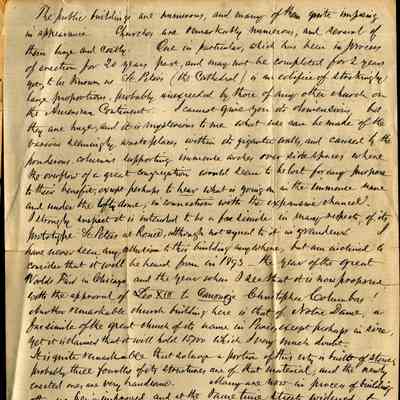 The public buildings are numerous, and many of them quite imposing
in appearance. Churches are remarkably numerous, and several of
them huge and costly. One in particular, which has been in process
of erection for 20 years past, and may not be completed for 2 years
yet, to be known as St Peters (the Cathedral) is an edifice of strikingly
large proportions, probably unexceeded by those of any other church on
the American Continent. I cannot give you its dimensions, but
they are huge, and it is mysterious to me what use can be made of the
various seemingly waste places within its gigantic walls, and caused by the
ponderous columns supporting immense arches over side spaces where
the overflow of a great congregation would seem to be lost for any purpose
to their benefit, except perhaps to hear what is going on in the immense nave
and under the lofty dome, in connection with the expansive chancel.
I strongly suspect it is intended to be a fac simile in many respects, of its
prototype St Peters at Rome, although not equal to it in grandeur. I
have never seen any allusion to this building anywhere, but am inclined to
consider that it will be heard from in 1893 – the year of the great
Worlds Fair in Chicago and the year when I see that it is now proposed
with the approval of Leo XIII to Canonize Christopher Columbus!
Another remarkable church building here is that of Notre Dame, a
facsimile of the great church of its name in Paris, except perhaps in size,
yet it is claimed that it will hold 15000 which I very much doubt.
It is quite remarkable that so large a portion of this city is built of stone,
probably three fourths of its structures are of that material, and the newly
erected ones are very handsome. Many are now in process of building
at the same time streets widened, to